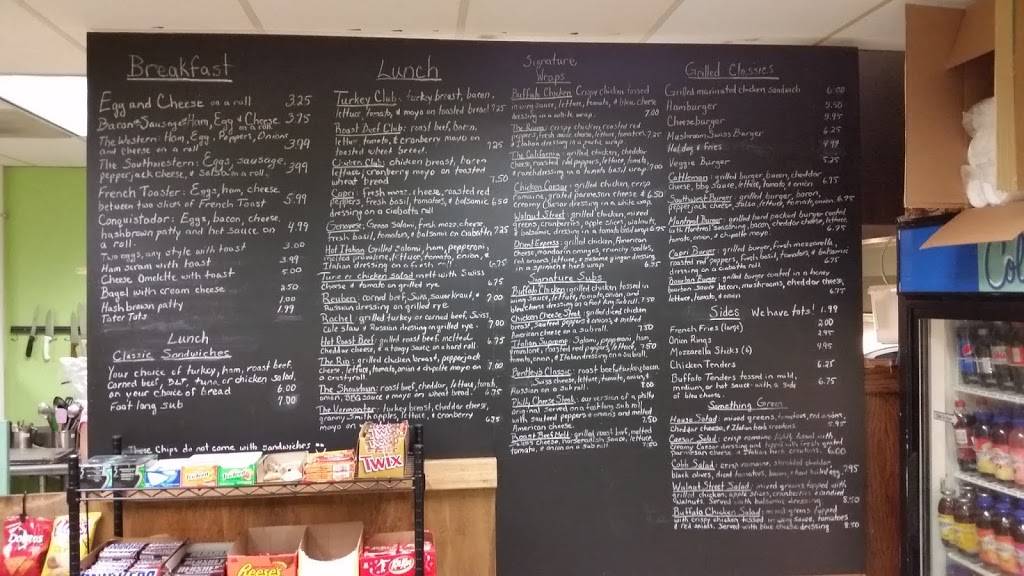 Breakfast
Egg and Cheese on a roll 3.25
Bacon, Sausage, Ham, Egg & Cheese on a roll 3.75
The Western: Ham, Egg, Peppers, Onions
and cheese on a roll 3.99
The Southwestern: Eggs, sausage,
pepperjack cheese, & salsa on a roll 3.99
French Toaster: Eggs, ham, cheese
between two slices of French Toast 5.99
Conquistador: Eggs, bacon, cheese,
hashbrown patty and hot sauce on
a roll 4.99
Two eggs, any style with toast 3.00
Ham scram with toast 3.99
Cheese Omelette with toast 5.00
Bagel with cream cheese 2.50
Hashbrown patty 1.00
Tater Tots 1.99
Lunch
Classic Sandwiches
Your choice of turkey, ham, roast beef,
corned beef, BLT, tuna, or chicken salad
on your choice of bread 6.00
Foot long sub 7.00
These Chips do not come with Sandwiches
Lunch
Turkey Club: turkey breast, bacon,
lettuce, tomato, & mayo on toasted bread 7.25
Roast Beef Club: roast beef, bacon,
lettuce, tomato, & cranberry mayo on
toasted wheat bread 7.25
Chicken Club: chicken breast, bacon
lettuce, cranberry mayo on toasted
wheat bread 7.50
Capri: fresh mozz. cheese, roasted red
peppers, fresh basil, tomatoes, & balsamic
dressing on a ciabatta roll 6.50
Genovese: Genoa Salami, fresh mozz. cheese,
fresh basil, tomato, & balsamic on ciabatta 7.25
Hot Italian: Grilled Salami, ham, pepperoni,
melted provolone, lettuce, tomato, onion, &
Italian dressing on a
6.75
Tuna or chicken salad melt with Swiss
Cheese & tomato on grilled rye 6.75
Reuben: corned beef, Swiss, sauerkraut, &
Russian dressing on grilled rye 7.00
Rachel: grilled turkey or corned beef, Swiss,
Cole slaw & Russian dressing on grilled rye 7.00
Hot Roast Beef: grilled roast beef, melted
cheddar cheese, & a tangy sauce on a hard roll 6.75
The Rio: grilled chicken breast, pepperjack
cheese, lettuce, tomato, onion & chipotle mayo on
a crusty roll 7.00
The Showdown: roast beef, cheddar, lettuce, tomato,
onion, BBQ sauce & mayo on wheat bread 6.75
The Vermonter: turkey breast, cheddar cheese,
Smith apples, lettuce, & cranberry
mayo on 6.25
Signature
Wraps
Buffalo Chicken: Crispy chicken tossed
in wing sauce, lettuce, tomato, & bleu cheese
dressing on a white wrap 7.00
The Roma: crispy chicken, roasted red
peppers, fresh mozz cheese, lettuce, tomato,
& Italian dressing in a wrap 7.25
The California: grilled chicken, cheddar
cheese, roasted red peppers, lettuce, tomato
& ranch dressing in a tomato basil wrap 7.00
Chicken Caesar: grilled chicken, crisp
romaine, grated parmesan cheese &
creamy Caesar dressing in a white wrap 6.50
Walnut Street: grilled chicken, mixed
greens, cranberries, apple slices, walnuts
& balsamic dressing in a tomato basil wrap 7.00
Orient Express: grilled chicken, American
Cheese,
lettuce, & sesame ginger dressing
in a spinach wrap 6.75
Signature Subs
Buffalo Chicken: grilled chicken tessed in
wing Sauce, lettuce, tomato, onion, and
bleu cheese dressing on a foot long roll 7.50
Chicken Cheese Steak: grilled diced chicken
breast, sauteed peppers & onions, & melted
american cheese on a sub roll 7.50
Italian Supreme: Salami, pepperoni, ham,
provolone, roasted red peppers, lettuce,
tomato, onion, & Italian dressing on a sub roll 7.50
Bentley's Classic: roast beef, turkey, bacon
Swiss cheese, lettuce, tomato, onion, &
Russian on a sub roll 7.00
Philly Cheese Steak: our version of a philly
original. Served on a toasted sub roll
with sauteed peppers, onions and melted
American cheese. 7.50
Roast Beef Melt: grilled roast beef, melted
cheese, horseradish sauce, lettuce,
tomato, & onion on a sub roll 7.50
Grilled Classics
Grilled marinated chicken sandwich 6.00
Hamburger 5.50
Cheeseburger 5.95
Mushroom Swiss Burger 6.25
Hotdog & fries 4.99
Veggie Burger 5.25
Cattleman: grilled burger, bacon, cheddar
cheese, bbq sauce, lettuce, tomato, & onion 6.75
Southwest Burger: grilled burger, bacon,
pepperjack cheese, salsa, lettuce, tomato, onion 6.75
Montreal Burger: grilled hand packed burger coated
with Montreal seasoning, bacon, cheddar cheese, lettuce,
tomato, onion, & chipotle mayo 6.75
Capri Burger: grilled burger, fresh mozzarella,
roasted red peppers, fresh basil, tomatoes, & balsamic
dressing on a ciabatta roll 6.75
Bourbon Burger: grilled burger coated in a honey
bourbon sauce, bacon, mushrooms, cheddar cheese,
lettuce, tomato, & onion 6.75
Sides We have tots! 1.99
French Fries (large) 2.00
Onion Rings 2.95
Mozzarella Sticks (6) 4.95
Chicken Tenders 6.25
Buffalo Tenders tossed in mild,
medium, or hot sauce with a side
of bleu cheese. 6.75
Something Green
House Salad: mixed greens, tomatoes, red onions,
Cheddar cheese, & Italian herb croutons 5.95
Caesar Salad: crisp romaine lightly tossed with
creamy Caesar dressing and topped with
Parmesan cheese & Italian herb croutons 6.00
Cobb Salad: crisp romaine, shredded cheddar,
black olives, diced tomatoes, bacon, & hard boiled egg 7.95
Walnut Street Salad: mixed greens topped with
grilled chicken, apple slices, cranberries & candied
walnuts. Served with balsamic dressing 8.50
Buffalo Chicken Salad: mixed greens topped
with crispy chicken tossed in wing sauce, tomatoes
& red onions, served with bleu cheese dressing 8.50
TWIX
Trident
Doritos
Reese's
KitKat
HERSHEY'S
Col